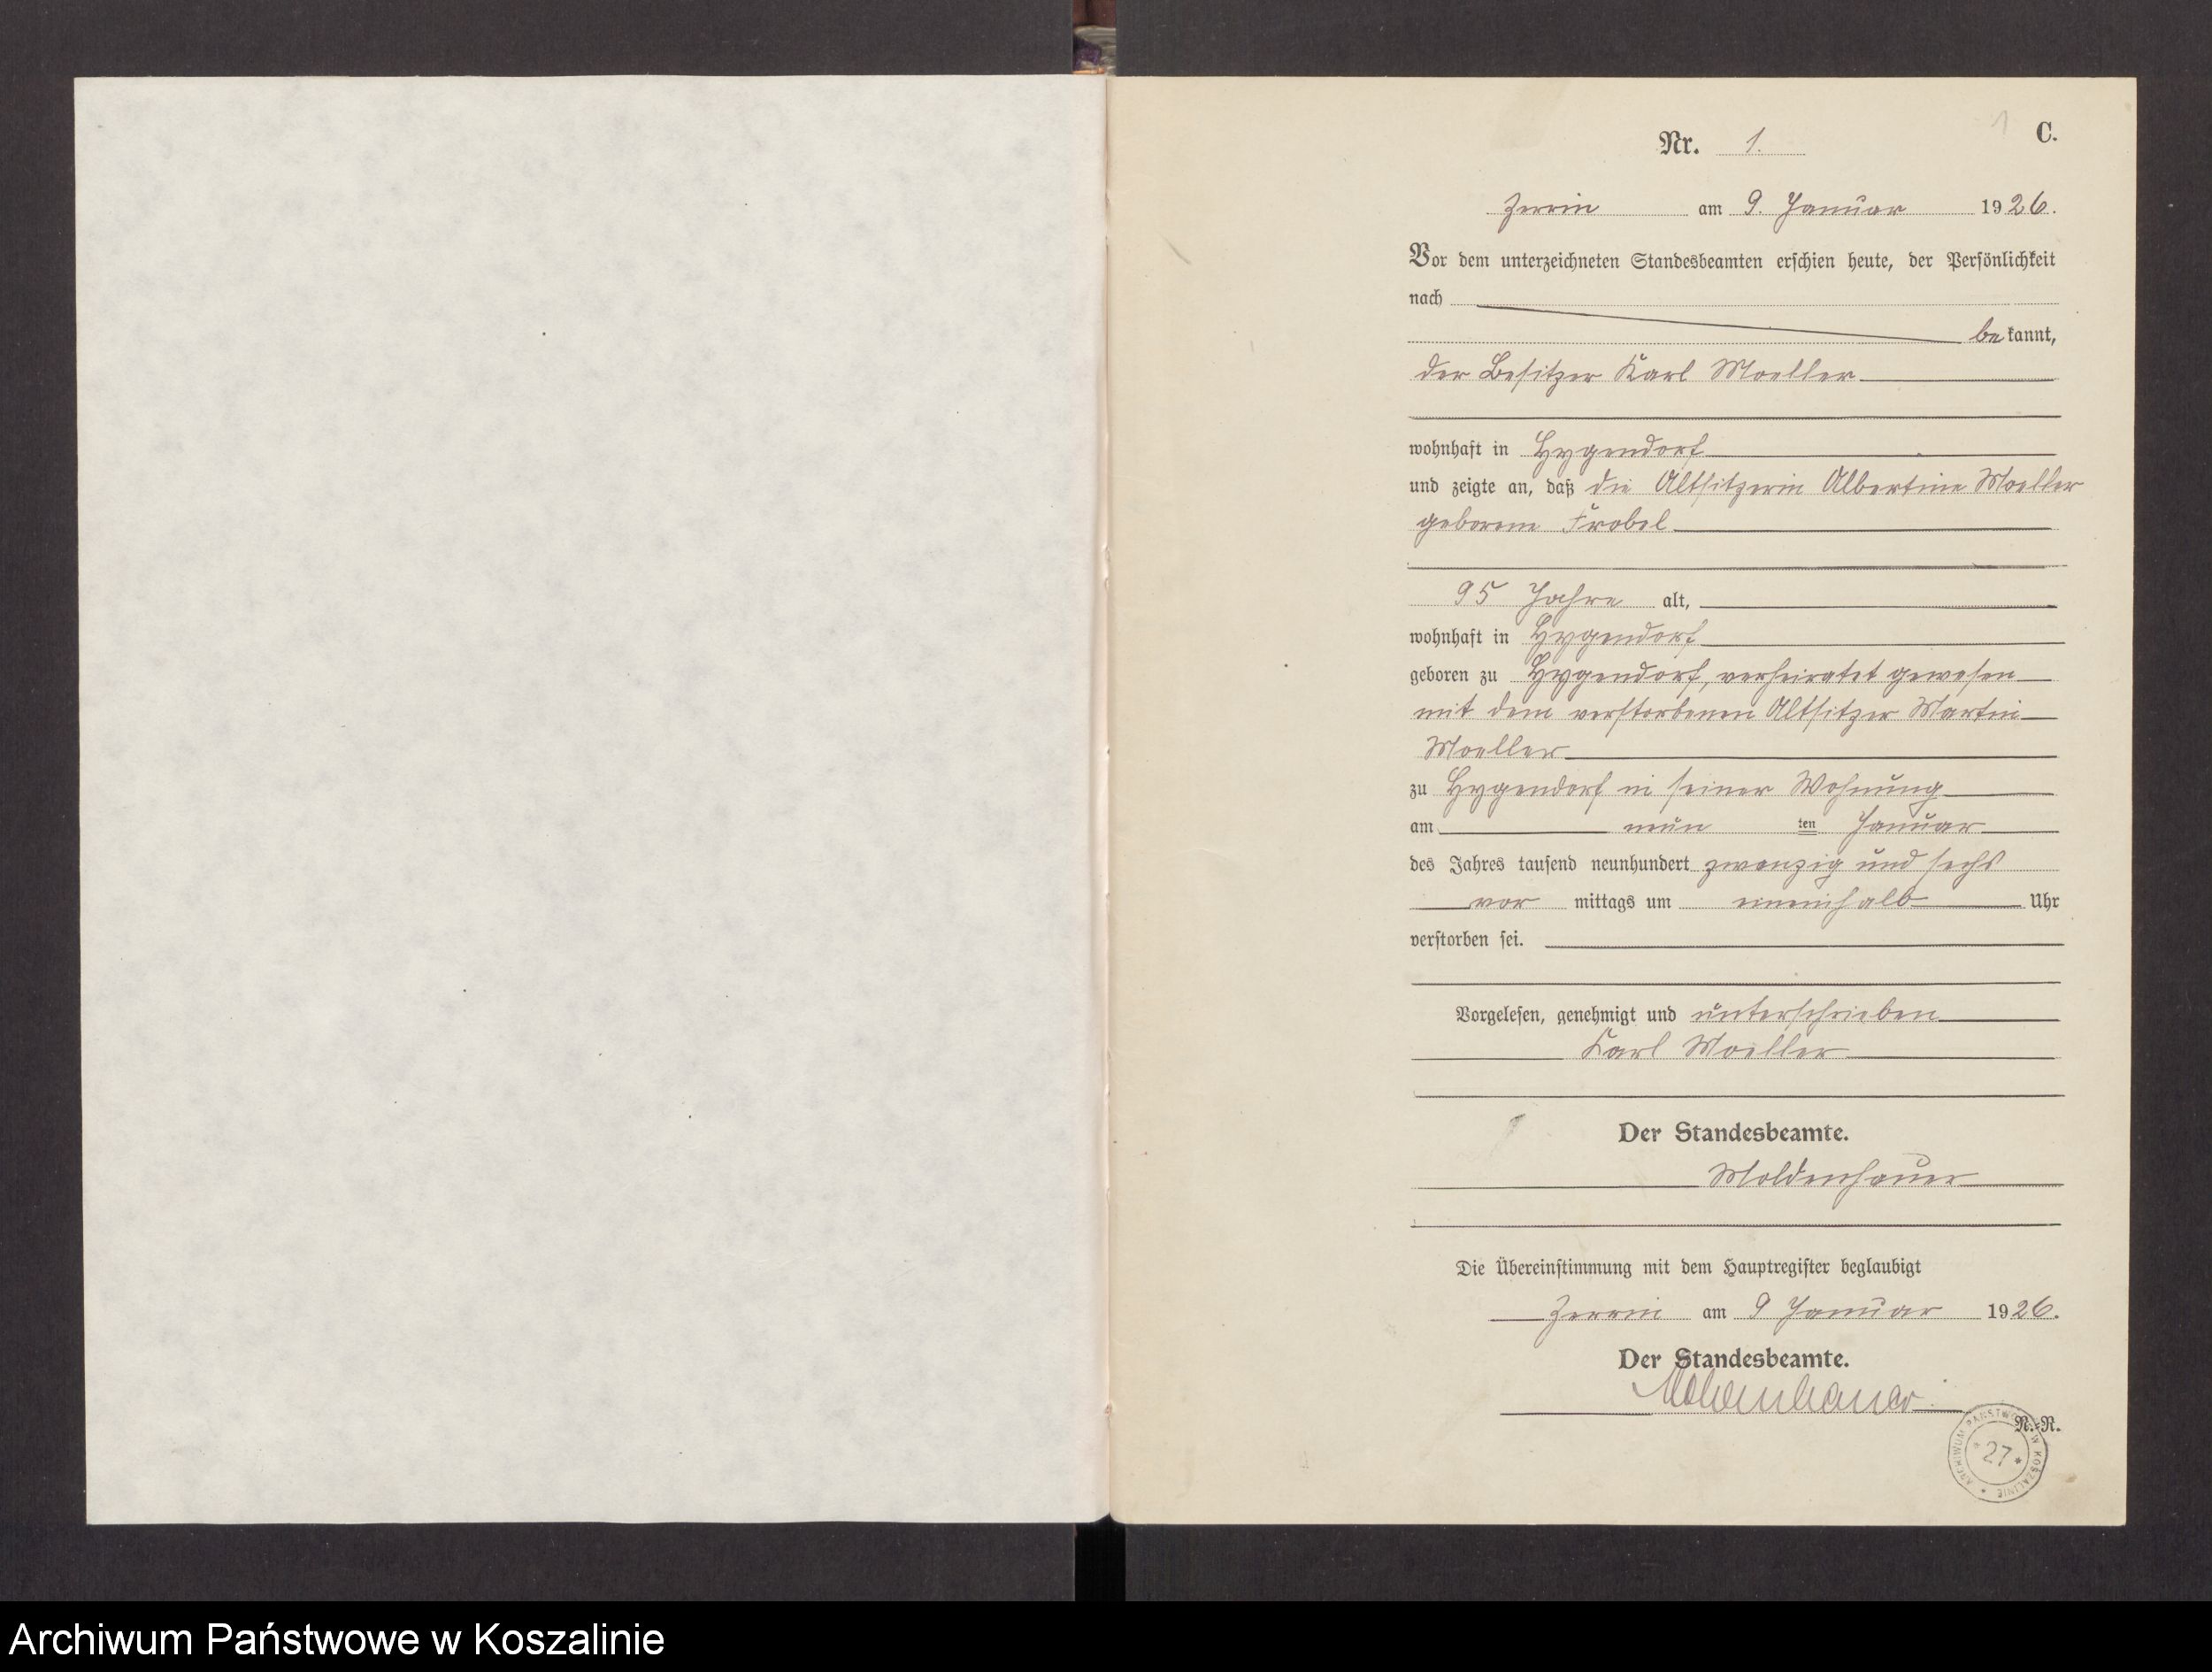 1 C.
Nr. 1.
Zerrin am 9. Januar 1926.
Vor dem unterzeichneten Standesbeamten erschien heute, der Persönlichkeit
nach
bekannt,
der Besitzer Karl Moeller
wohnhaft in Hygendorf
und zeigte an, daß die Altsitzerin Albertine Moeller
geborene Frobel
95 Jahre alt,
wohnhaft in Hygendorf
geboren zu Hygendorf, verheiratet gewesen
mit dem verstorbenen Altsitzer Martin
Moeller
zu Hygendorf in seiner Wohnung
am neun ten Januar
des Jahres tausend neunhundert zwanzig und sechs
vor mittags um eineinhalb Uhr
verstorben sei.
Vorgelesen, genehmigt und unterschrieben
Karl Moeller
Der Standesbeamte.
Moldenhauer
Die Übereinstimmung mit dem Hauptregister beglaubigt
Zerrin am 9 Januar 1926.
Der Standesbeamte.
Moldenhauer
R.=R.
ARCHIWUM PAŃSTWOWE W KOSZALINIE
* 27 *
Archiwum Państwowe w Koszalinie